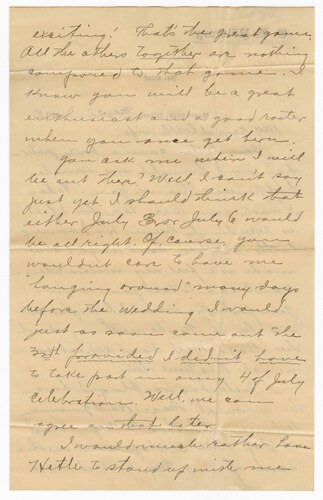 exciting! That's the great game.
All the others together are nothing
compared to that game. I
know you will be a great
enthusiast and a good rooter
when you once get here.
You ask me when I will
be out there? Well I can't say
just yet. I should think that
either July 3, or July 6 would
be all right. Of course, you
wouldn't care to have me
"hanging around" many days
before the wedding. I would
just as soon come out the
3rd provided I didn't have
to take part in any 4 of July
Celebration. Well, we can
agree on that later.
I would much rather have
Hettle to stand up with me